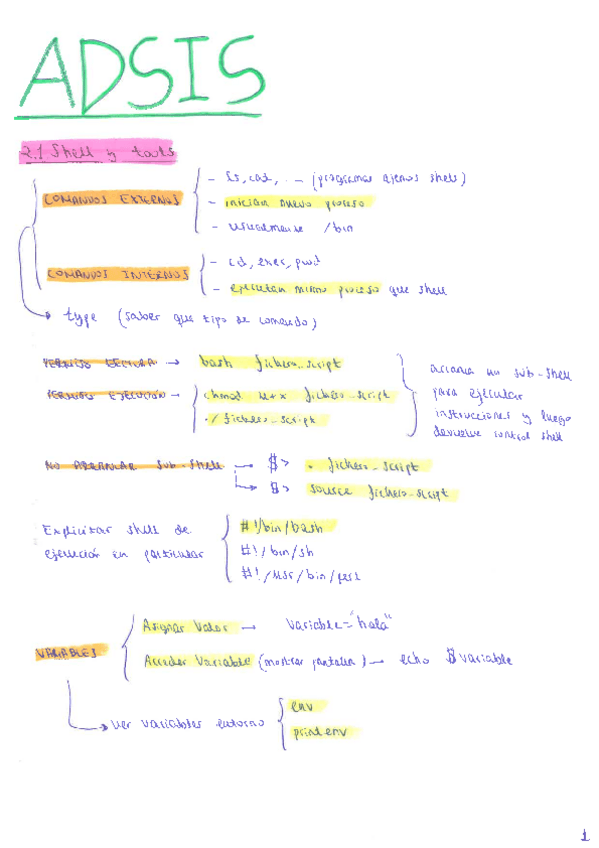 ADSIS
2.1 Shell y tools
COMANDOS EXTERNOS
- ls, cat, ... - (programas ajenos shell)
- inician nuevo proceso
- usualmente /bin
COMANDOS INTERNOS
- cd, exec, pwd
- ejecutan mismo proceso que shell
type (saber que tipo de comando)
PERMISO LECTURA → bash fichero_script
PERMISO EJECUCIÓN → chmod u+x fichero_script
./fichero_script
arranca un sub-shell
para ejecutar
instrucciones y luego
devuelve control shell
NO ARRANCAR SUB-SHELL → $> . fichero_script
$> source fichero_script
Explicitar shell de
ejecución en particular
#!/bin/bash
#!/bin/sh
#!/usr/bin/perl
VARIABLES
Asignar Valor → Variable="hola"
Acceder Variable (mostrar pantalla) → echo $variable
Ver variables entorno
env
printenv
1